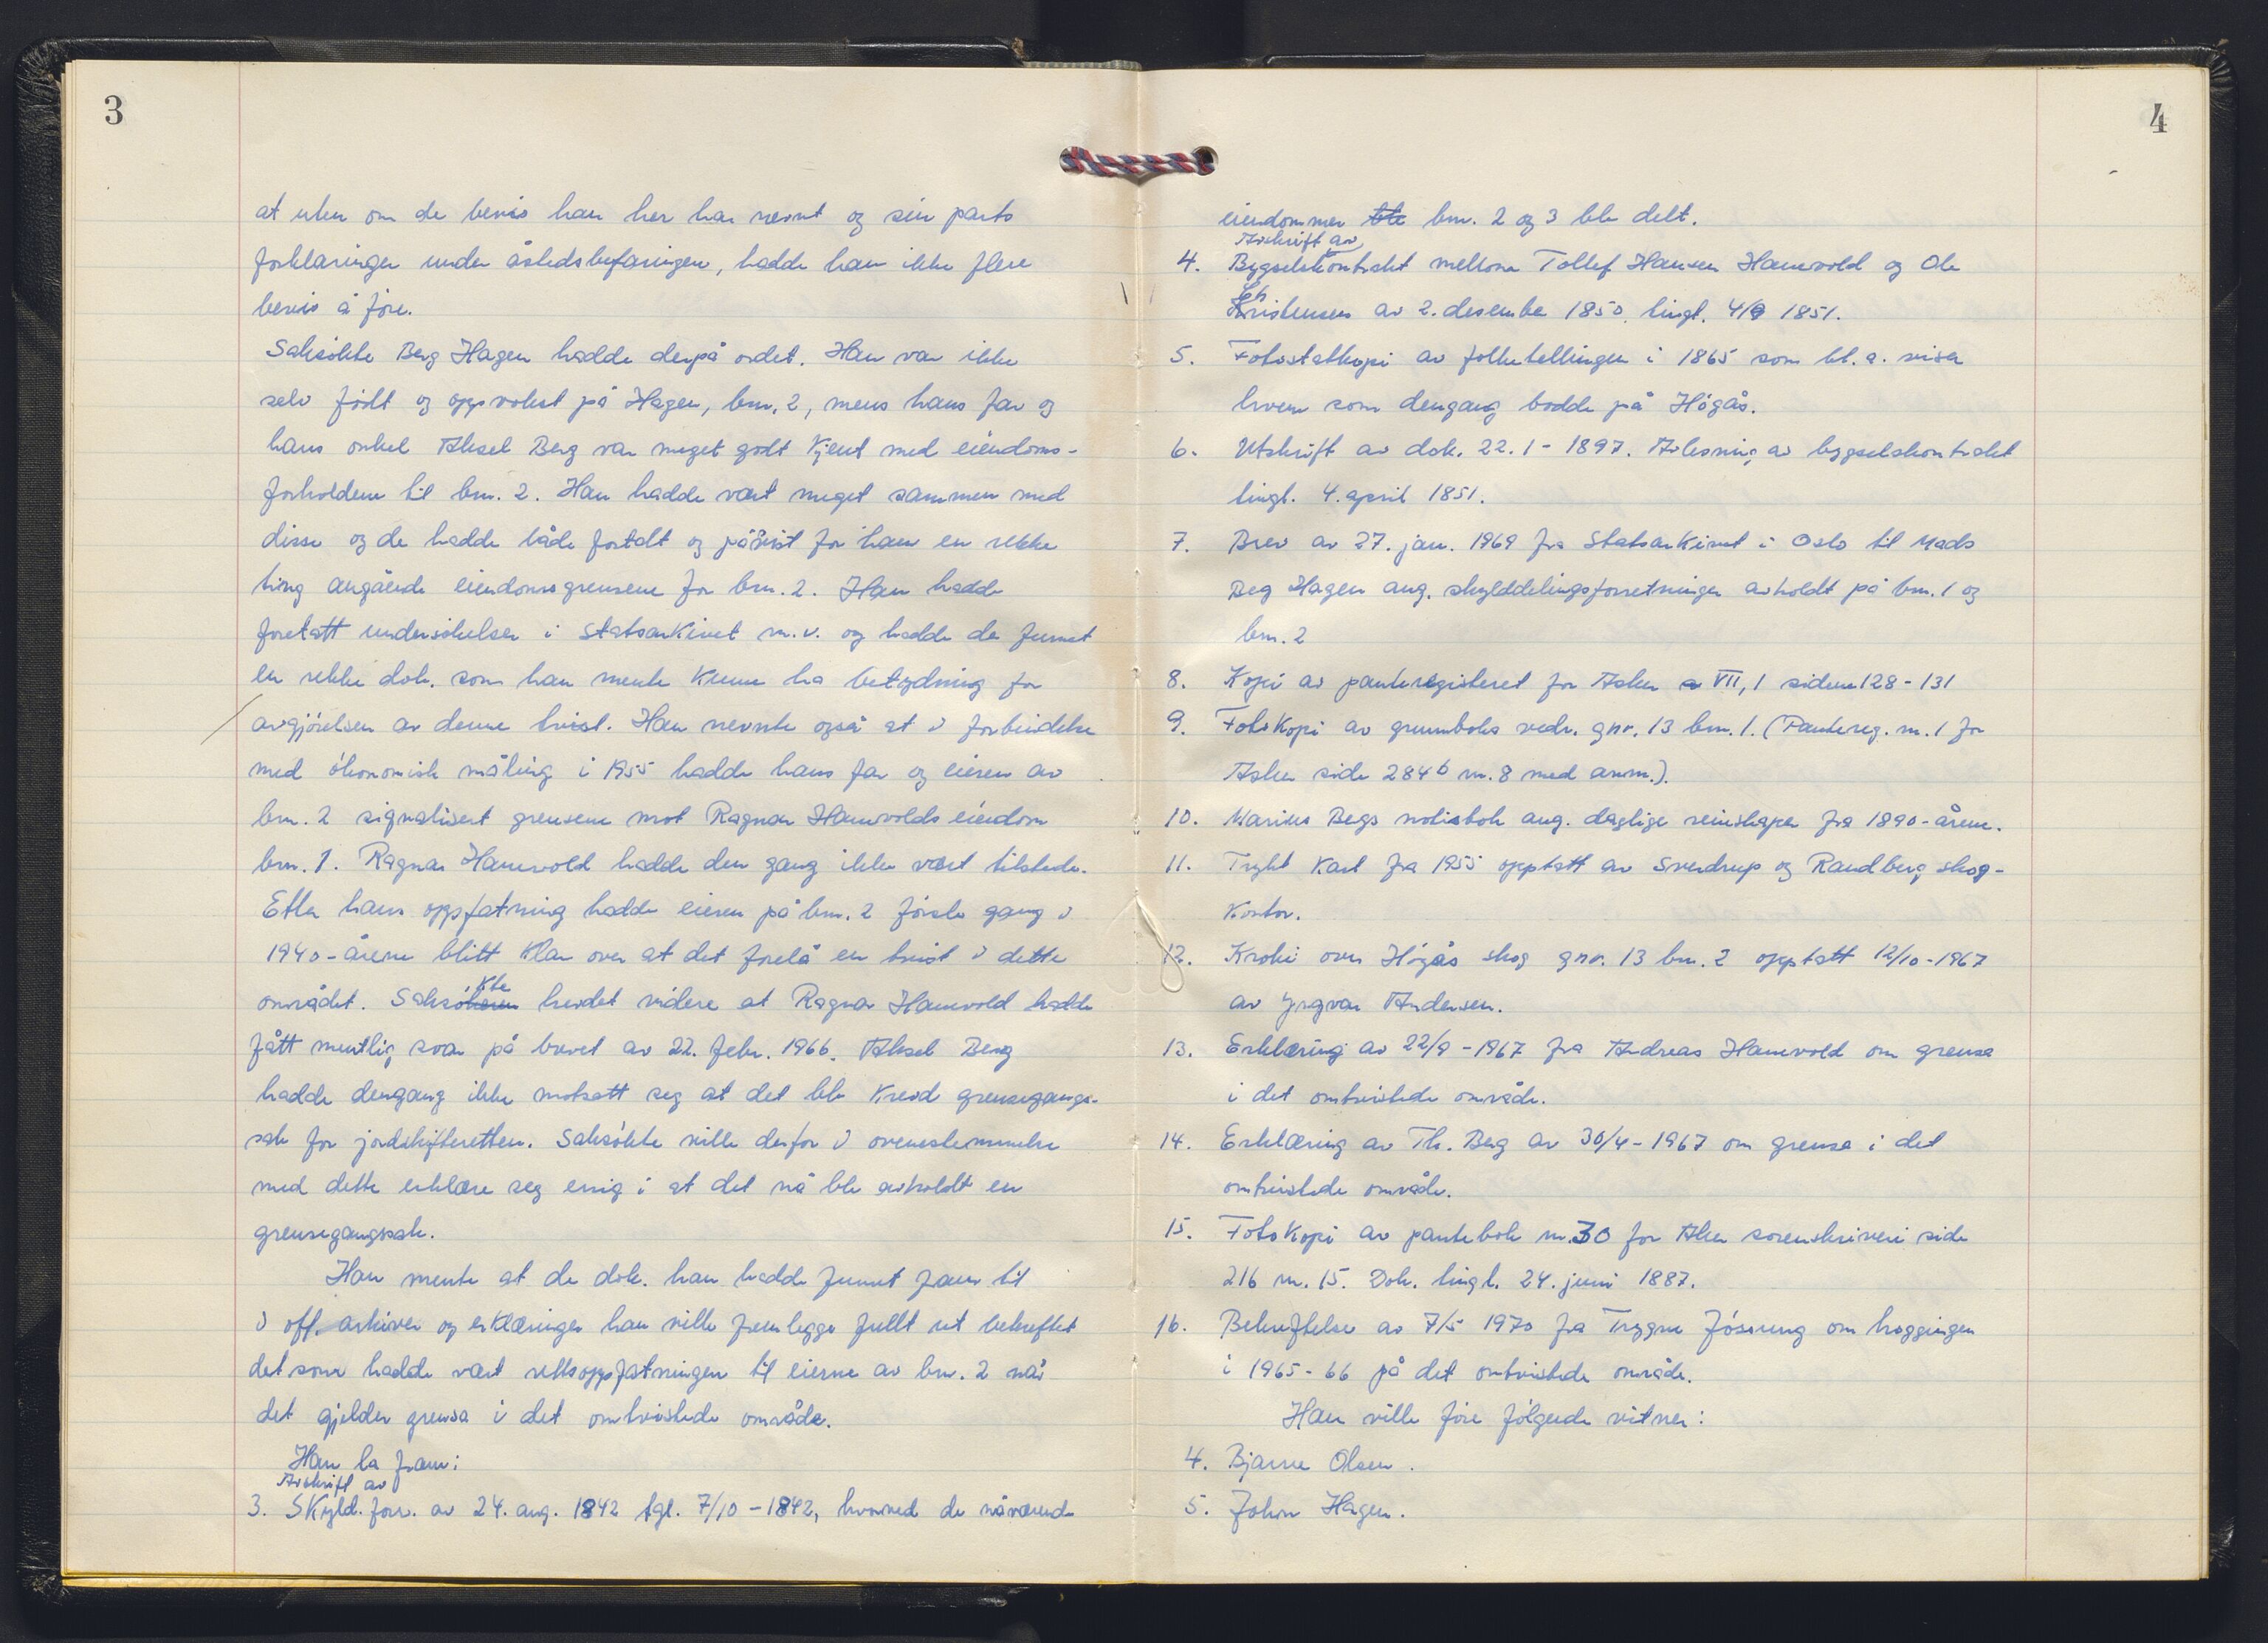 3
at uten om de bevis han her har nevnt og sin parts
forklaringer under åstedsbefaringen, hadde han ikke flere
bevis å føre.
Saksøkte Berg Hagen hadde derpå ordet. Han var ikke
selv født og oppvokst på Hagen, bnr. 2, mens hans far og
hans onkel Aksel Berg var meget godt kjent med eiendoms-
forholdene til bnr. 2. Han hadde vært meget sammen med
disse og de hadde både fortalt og påvist for ham en rekke
ting angående eiendomsgrensene for bnr. 2. Han hadde
foretatt undersøkelser i Statsarkivet m.v. og hadde der funnet
en rekke dok. som han mente kunne ha betydning for
avgjørelsen av denne tvist. Han nevnte også at i forbindelse
med økonomisk måling i 1955 hadde hans far og eieren av
bnr. 2 signalisert grensene mot Ragnar Hanevolds eiendom
bnr. 1. Ragnar Hanevold hadde den gang ikke vært tilstede.
Etter hans oppfatning hadde eieren på bnr. 2 første gang i
1940-årene blitt klar over at det forelå en tvist i dette
området. Saksøkte hevdet videre at Ragnar Hanevold hadde
fått muntlig svar på brevet av 22. febr. 1966. Aksel Berg
hadde dengang ikke motsatt seg at det ble krevd grensegangs-
sak for jordskifteretten. Saksøkte ville derfor i overenstemmelse
med dette erklære seg enig i at det nå ble avholdt en
grensegangssak.
Han mente at de dok. han hadde funnet fram til
i off. arkiver og erklæringer han ville fremlegge fullt ut bekreftet
det som hadde vært rettsoppfatningen til eierne av bnr. 2 når
det gjelder grensa i det omtvistede område.
Han la fram:
Avskrift av
3. Skyld. forr. av 24. aug. 1842 tgl. 7/10-1842, hvorved de nåværende
4
eiendommer ble bnr. 2 og 3 ble delt.
Avskrift av
4. Bygselskontrakt mellom Tollef Hansen Hanevold og Ole
Christensen av 2. desember 1850. tingl. 4/4 1851.
5. Fotostatkopi av folketellingen i 1865 som bl.a. viser
hvem som dengang bodde på Høgås.
6. Utskrift av dok. 22.1-1897. Avlesning av bygselskontrakt
tingl. 4. april 1851.
7. Brev av 27. jan. 1969 fra Statsarkivet i Oslo til Mads
Berg Hagen ang. skylddelingsforretninger avholdt på bnr. 1 og
bnr. 2
8. Kopi av panteregisteret for Asker VII, 1 sidene 128-131
9. Fotokopi av grunnboka vedr. gnr. 13 bnr. 1. (Pantereg. nr. 1 for
Asker side 284b nr. 8 med anm.).
10. Marius Bergs notisbok ang. daglige regnskaper fra 1890-årene.
11. Trykt kart fra 1955 opptatt av Sverdrup og Randberg skog-
kontor.
12. Kroki over Høgås skog gnr. 13 bnr. 2 opptatt 12/10-1967
av Yngvar Andersen.
13. Erklæring av 22/9-1967 fra Andreas Hanevold om grensa
i det omtvistede område.
14. Erklæring av Th. Berg av 30/4-1967 om grensa i det
omtvistede område.
15. Fotokopi av pantebok nr. 30 for Aker sorenskriveri side
216 nr. 15. Dok. tingl. 24. juni 1887.
16. Bekreftelse av 7/5 1970 fra Trygve om hoggingen
i 1965-66 på det omtvistede område.
Han ville føre følgende vitner:
4. Bjarne Olsen.
5. John Hagen.